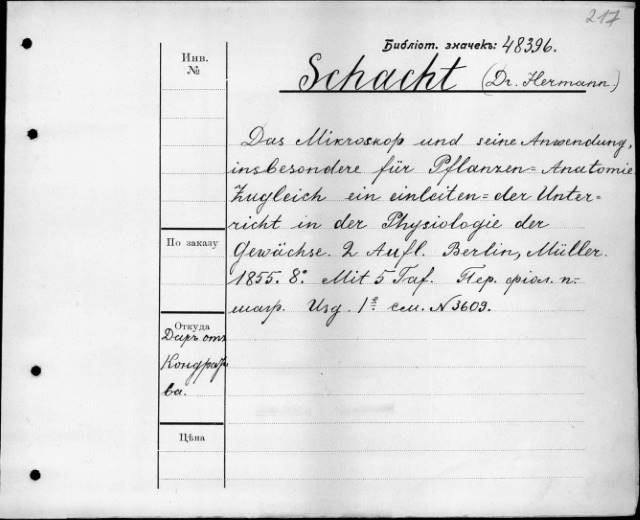 217
Библіот. значекъ: 48396.
Инв.
№
Schacht (Dr. Hermann.)
Das Mikroskop und seine Anwendung,
insbesondere für Pflanzen=Anatomie
Zugleich ein einleiten=der Unter=
richt in der Physiologie der
Gewächse. 2 Aufl. Berlin, Müller.
1855. 8°. Mit 5 Taf. Пер. фіол. п-
Изд. 1ᵉ см. N3609.
По заказу
Откуда
Даръ отъ
Кондрать
ва.
Цѣна